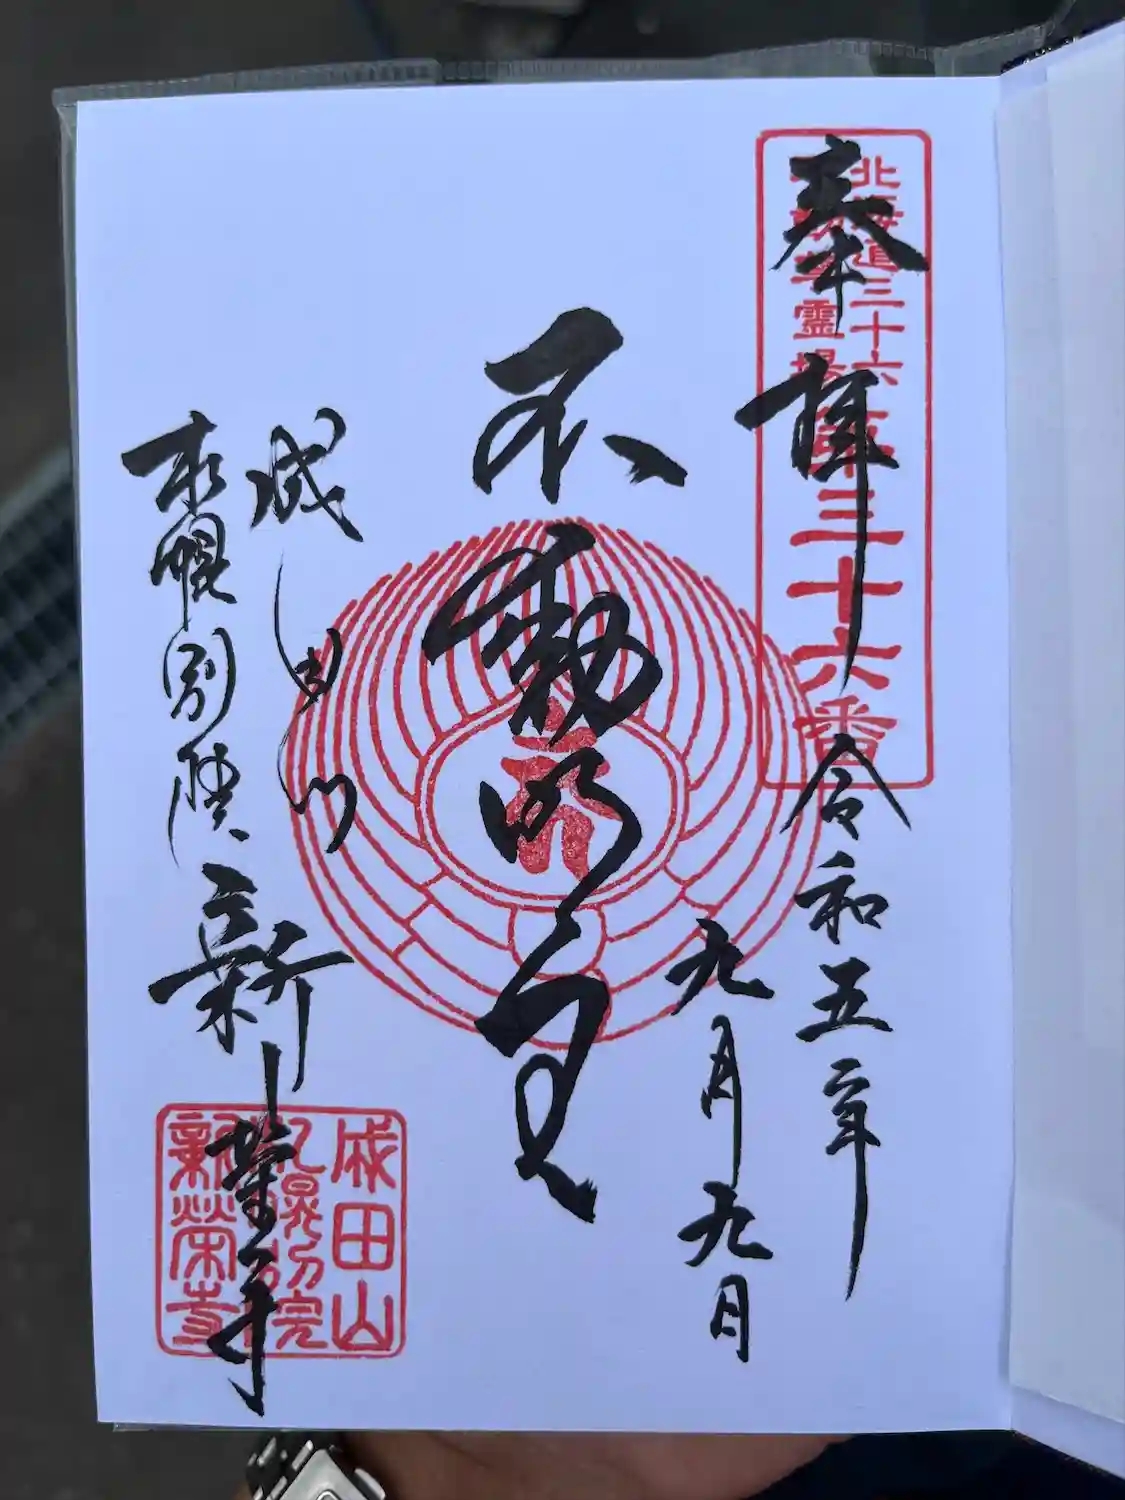 奉拝
北海道三十六
不動尊霊場
第三十六番
令和五年
九月九日
不動明王
成田山
札幌別院
新栄寺
成田山
札幌別院
新栄寺